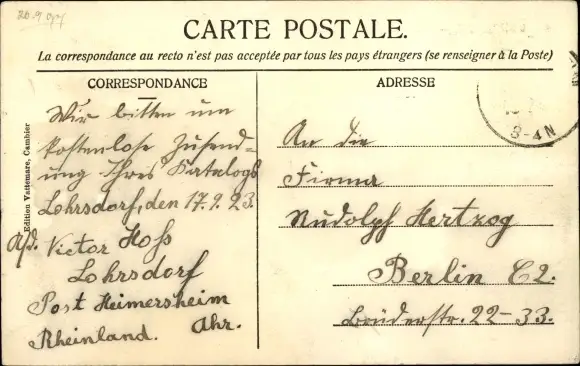 CARTE POSTALE.
La correspondance au recto n'est pas acceptée par tous les pays étrangers (se renseigner à la Poste)
CORRESPONDANCE
Wir bitten um
kostenlose Zusend-
ung Ihres Katalogs
Lohrsdorf, den 17.9.23.
Victor Hoß
Lohrsdorf
Post Heimersheim
Rheinland. Ahr.
Edition Vattemare, Cambier
ADRESSE
An die
Firma
Rudolph Hertzog
Berlin C2.
Brüderstr. 22-33.
8-4N